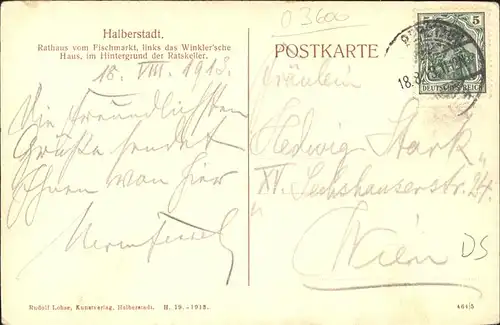 O 3600
Halberstadt.
Rathaus vom Fischmarkt, links das Winkler'sche
Haus, im Hintergrund der Ratskeller.
18. VIII. 1913.
Die freundlichsten
Grüße sendet
Ihnen von hier
POSTKARTE
5 5
DEUTSCHES REICH
18.8
Fräulein
Hedwig Stark
XV. Sechshauserstr. 24.
Wien
DS
Rudolf Lohse, Kunstverlag, Halberstadt. H. 19.-1913.
464/5